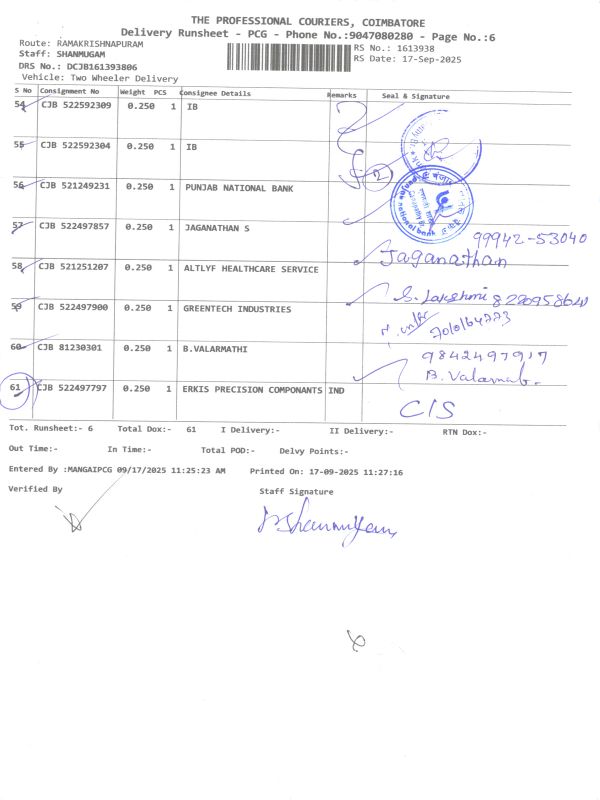 THE PROFESSIONAL COURIERS, COIMBATORE
Delivery Runsheet - PCG - Phone No.:9047080280 - Page No.:6
Route: RAMAKRISHNAPURAM
RS No.: 1613938
Staff: SHANMUGAM
RS Date: 17-Sep-2025
DRS No.: DCJB161393806
Vehicle: Two Wheeler Delivery
S No Consignment No Weight PCS Consignee Details Remarks Seal & Signature
54 CJB 522592309 0.250 1 IB
55 CJB 522592304 0.250 1 IB
2
56 CJB 521249231 0.250 1 PUNJAB NATIONAL BANK
57 CJB 522497857 0.250 1 JAGANATHAN S
99942-53040
Jaganathan
58 CJB 521251207 0.250 1 ALTLYF HEALTHCARE SERVICE
S. Lakshmi
59 CJB 522497900 0.250 1 GREENTECH INDUSTRIES
60 CJB 81230301 0.250 1 B.VALARMATHI
9842497917
B. Valarmab.
61 CJB 522497797 0.250 1 ERKIS PRECISION COMPONANTS IND
C/S
Tot. Runsheet:- 6 Total Dox:- 61 I Delivery:- II Delivery:- RTN Dox:-
Out Time:- In Time:- Total POD:- Delvy Points:-
Entered By :MANGAIPCG 09/17/2025 11:25:23 AM Printed On: 17-09-2025 11:27:16
Verified By Staff Signature
P. Shanmugam